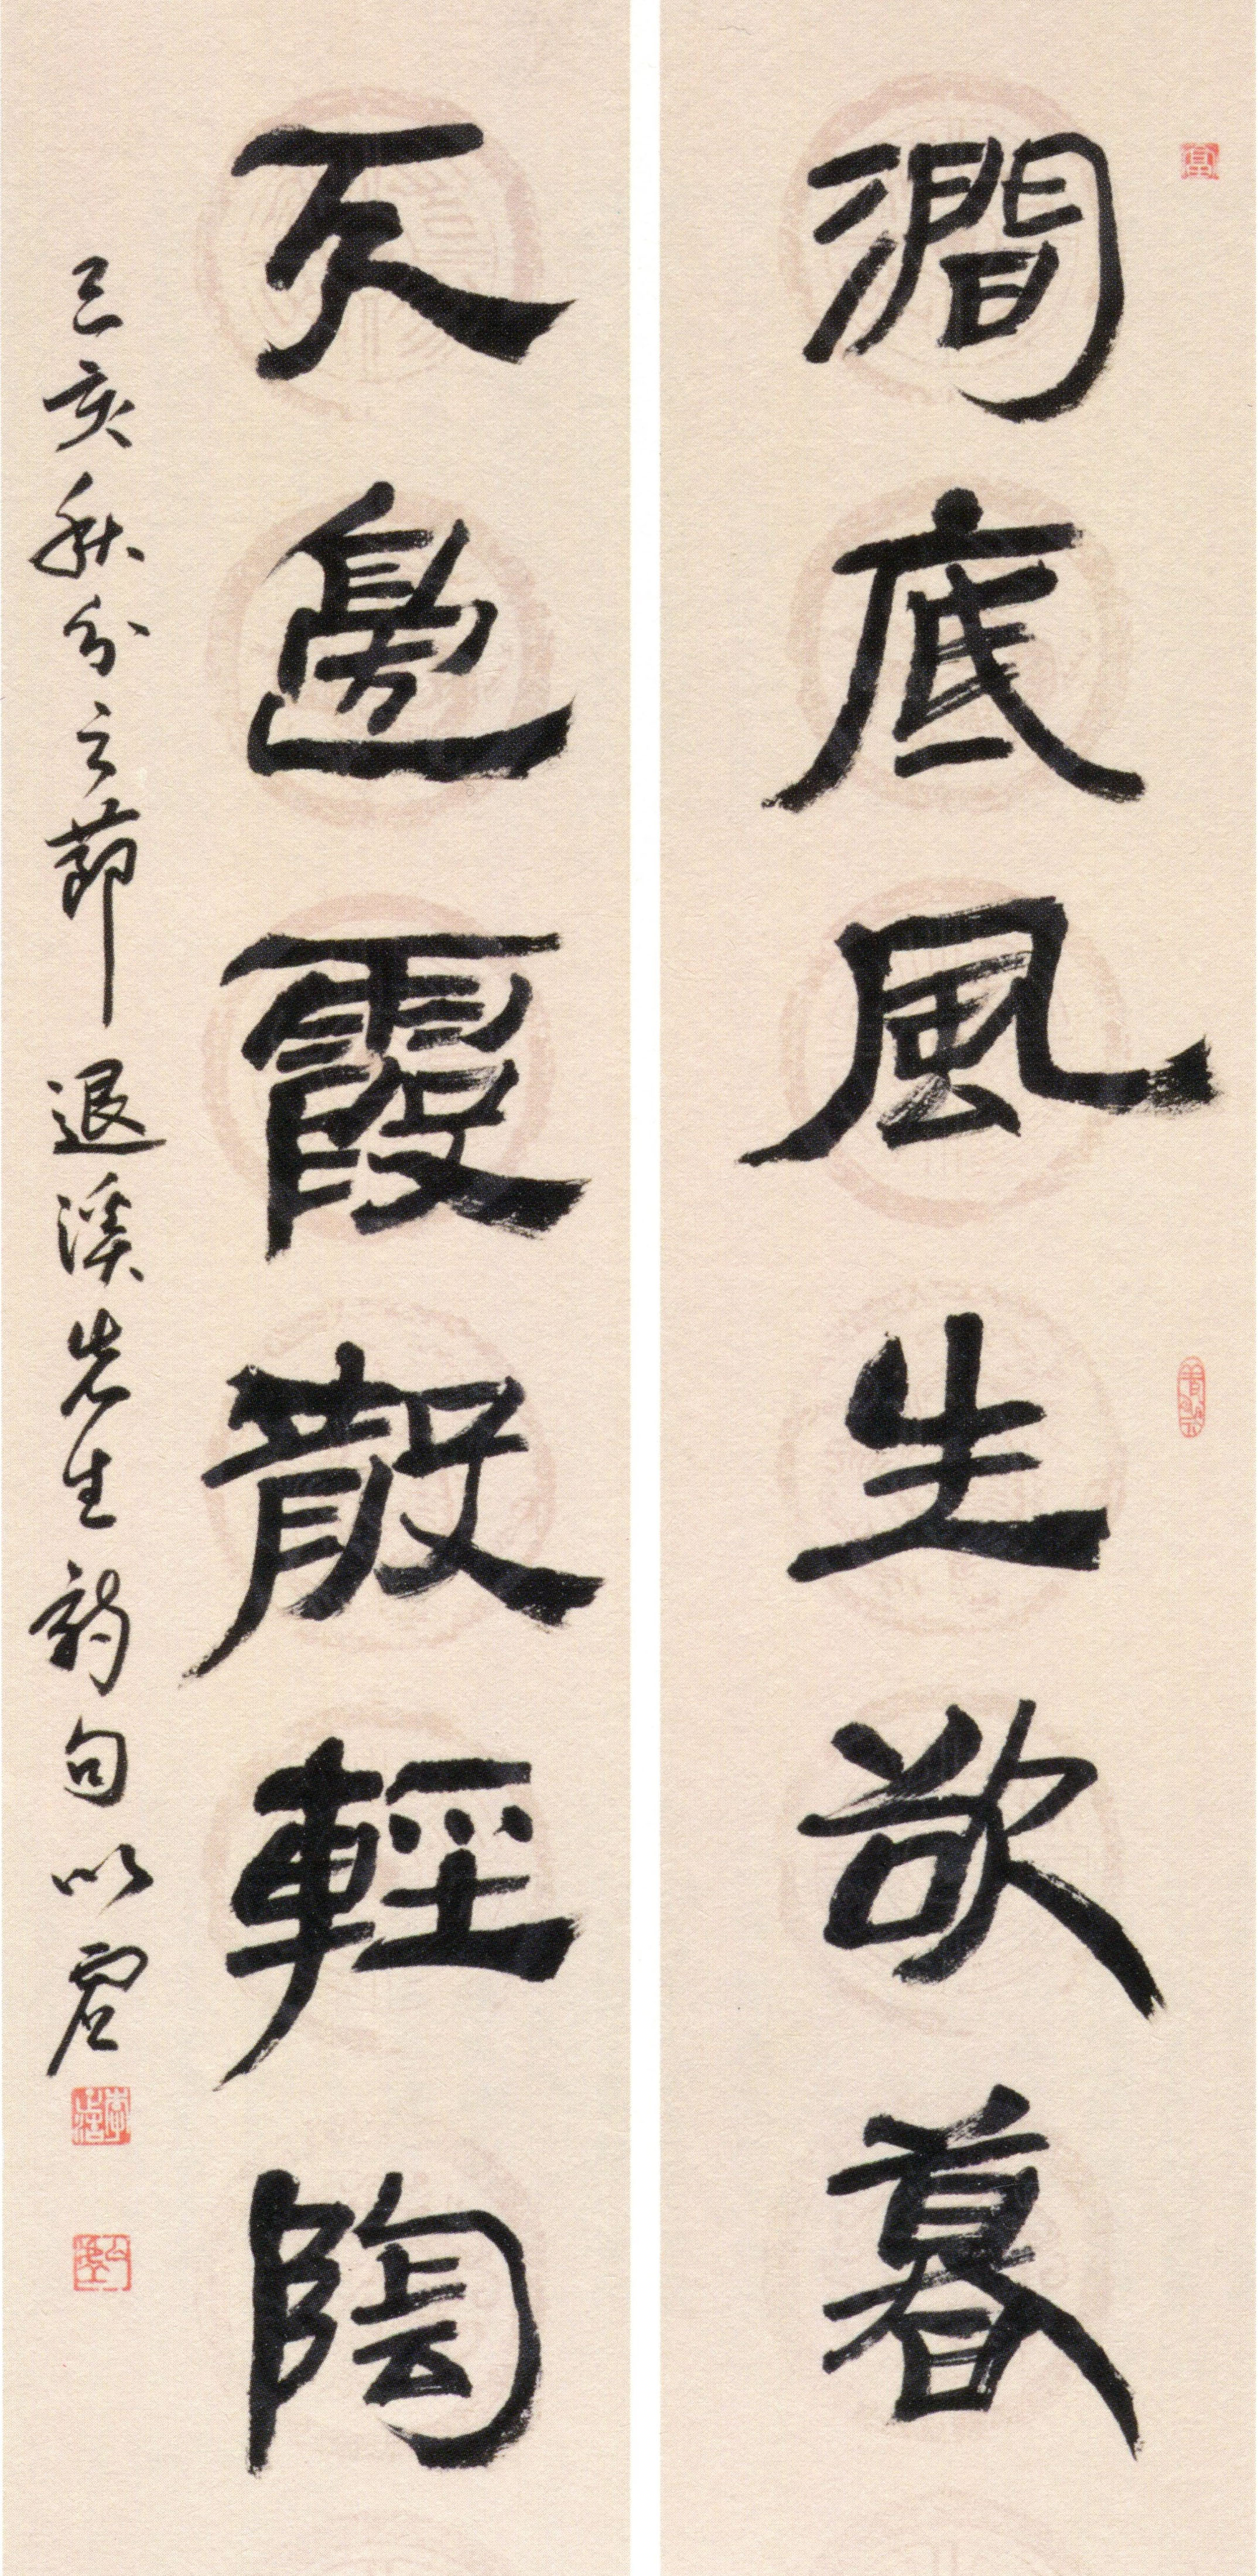 澗底風生欲暮
天邊霞散輕陰
己亥秋分之節 退溪先生詩句 以宕